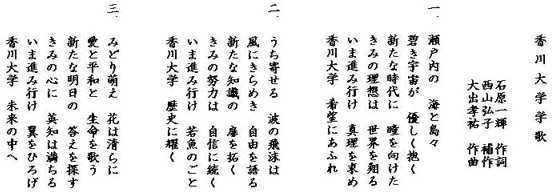 香川大学学歌
石原一輝 作詞
西山弘子 補作
大出孝祐 作曲
一、
瀬戸内の 海と島々
碧き宇宙が 優しく抱く
新たな時代に 瞳を向けた
きみの理想は 世界を翔る
いま進み行け 真理を求め
香川大学 希望にあふれ
二、
うち寄せる 波の飛沫は
風にきらめき 自由を語る
新たな知識の 扉を拓く
きみの努力は 自信に続く
いま進み行け 若魚のごと
香川大学 歴史に耀く
三、
みどり萌え 花は清らに
愛と平和と 生命を歌う
新たな明日の 答えを探す
きみの心に 英知は満ちる
いま進み行け 翼をひろげ
香川大学 未来の中へ